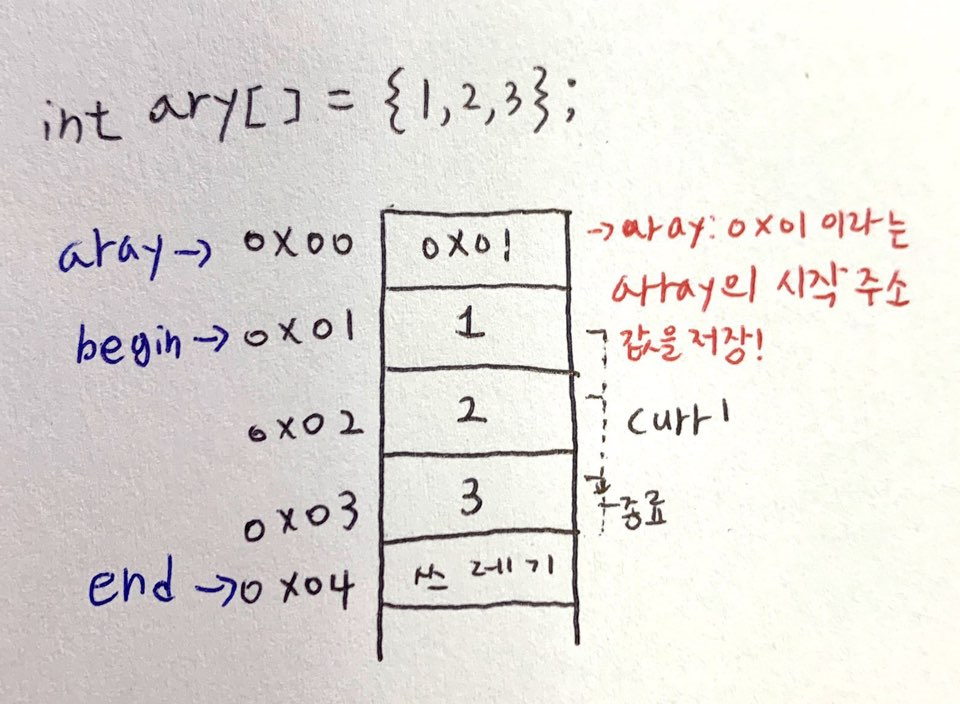 int ary[] = {1,2,3};
aray → 0x00 0x01 → aray: 0x01 이라는
array의 시작 주소
begin → 0x01 1 값을 저장!
0x02 2 curr1
0x03 3 종료
end → 0x04 쓰레기